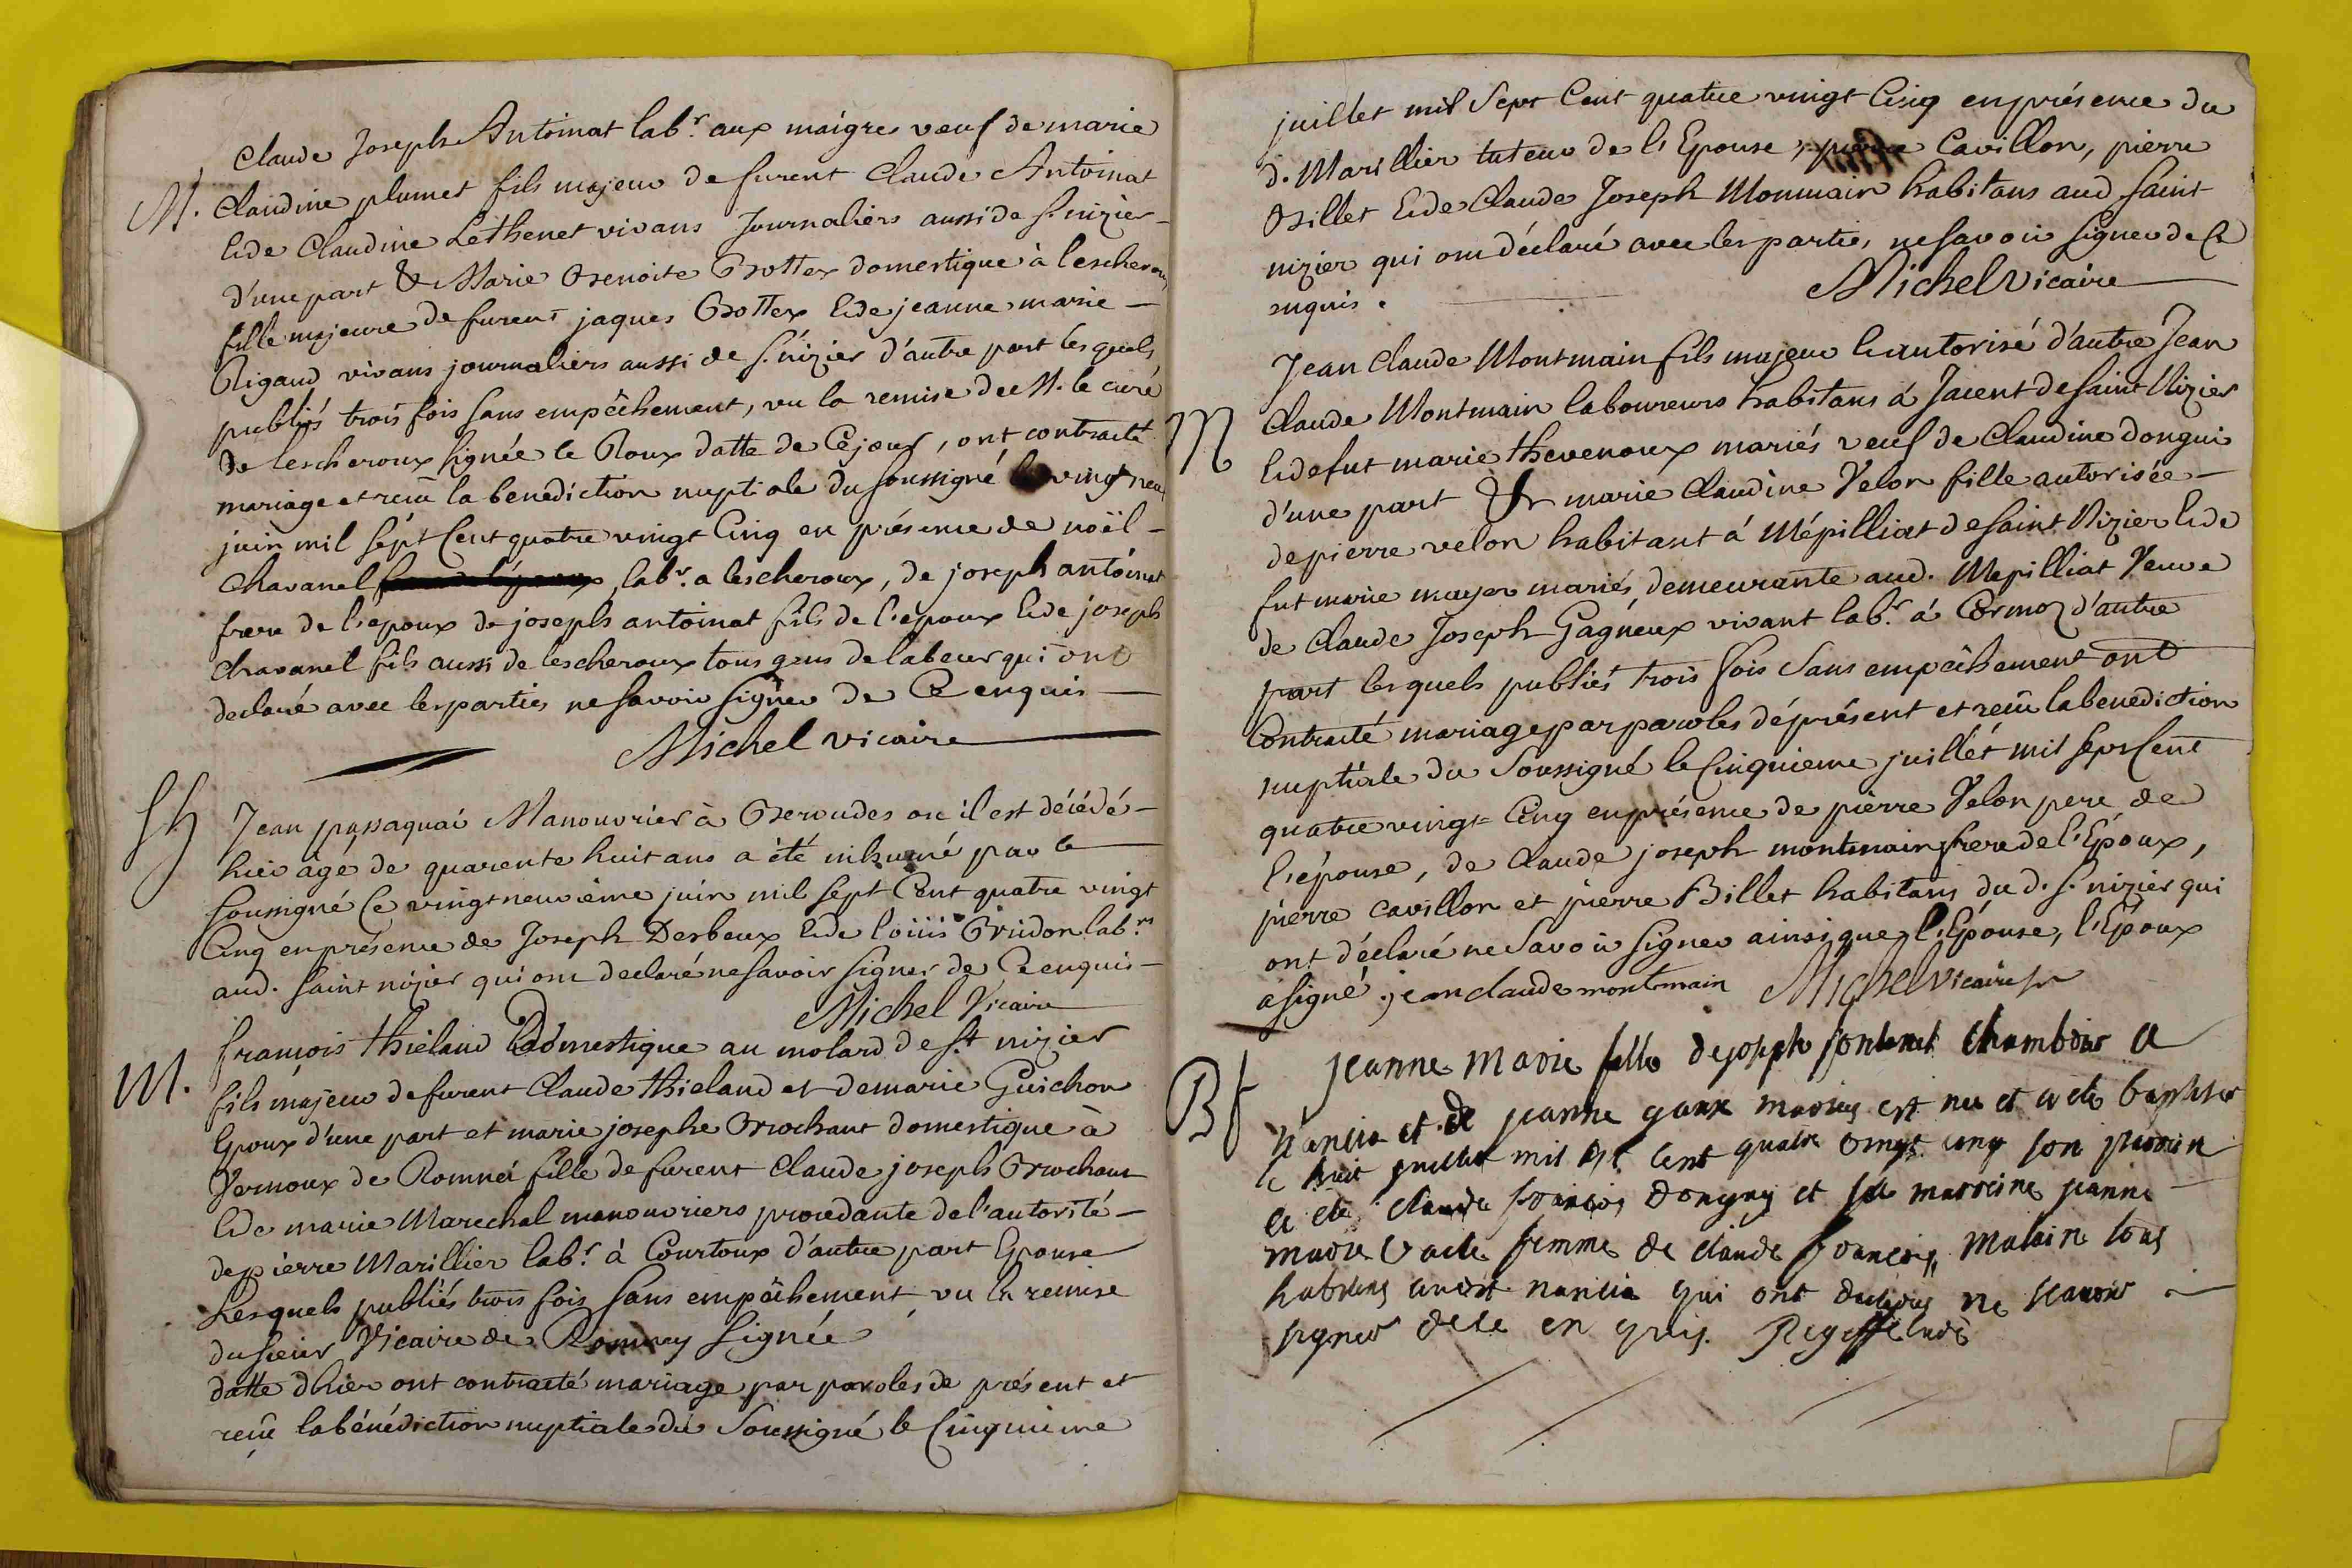 Claude Joseph Antoinat lab.r aux maigres veuf de marie
M. Claudine plumet fils majeur de furent Claude Antoinat
& de Claudine Lethenet vivans Journaliers aussi de S.t nizier -
d'une part & Marie Benoite Bottex domestique à lescheroux
fille majeure de furent jaques Bottex & de jeanne marie -
Rigaud vivans journaliers aussi de S.t nizier d'autre part lesquels
publiés trois fois sans empêchement, vu la remise de M. le curé
de lescheroux signée le Roux datte de Cejour, ont contracté
mariage et reçu la benediction nuptiale du soussigné le vingt neuf
juin mil sept Cent quatre vingt Cinq en présence de noël -
Chavanel lab.r a lescheroux, de joseph antoinat
frere de l'époux de joseph antoinat fils de l'epoux & de joseph
Chavanel fils aussi de lescheroux tous gens de labeur qui ont
declaré avec les parties ne savoir signer de Ce enquis -
Michel vicaire
Sh Jean passaquai Manouvrier à Beroudes ou il est décédé -
hier âgé de quarente huit ans a été inhumé par le
soussigné Ce vingt neuvième juin mil sept Cent quatre vingt
Cinq en présence de Joseph Desbeux & de loüis Bridon lab.rs
aud. saint nizier qui ont declaré ne savoir signer de Ce enquis -
Michel Vicaire
françois thielaud Domestique au molard de S.t nizier
M. fils majeur de furent Claude thielaud et de marie Guichon
Epoux d'une part et marie josephe Brochant domestique à
Vernoux de Romnai fille de furent Claude joseph Brochant
& de marie Marechal manouvriers procedante de l'autorité -
de pierre Marillier lab.r à Courtoux d'autre part Epouse
Lesquels publiés trois fois sans empêchement vu la remise
du sieur Vicaire de Romnay signée
datte d'hier ont contracté mariage par paroles de présent et
reçu la bénédiction nuptiale du Soussigné le Cinquieme
juillet mil Sept Cent quatre vingt Cinq en présence du
d. Marillier tuteur de l'Epouse, pierre Cavillon, pierre
Billet & de Claude Joseph Monmain habitans aud. saint
nizier qui ont déclaré avec les parties, ne savoir signer de Ce
enquis.
Michel vicaire
Jean Claude Montmain fils majeur & autorisé d'autre Jean
M Claude Montmain laboureurs habitans à Jacent de saint Nizier
& de fut marie thevenoux mariés veuf de Claudine dongui
d'une part & marie Claudine Velon fille autorisée -
de pierre velon habitant à Mépilliat de saint Nizier & de
fut marie mayer mariés, demeurante aud. Mepilliat Veuve
de Claude Joseph Gagneux vivant lab.r à Cormoz d'autre
part lesquels publiés trois fois sans empêchement ont
Contracté mariage par paroles de présent et reçu la benediction
nuptiale du Soussigné le Cinquieme juillet mil sept Cent
quatre vingt Cinq en présence de pierre Velon pere de
l'épouse, de Claude joseph montmain frere de l'Epoux,
pierre cavillon et pierre Billet habitans du d. S.t nizier qui
ont déclaré ne Savoir signer ainsi que l'Epouse, l'Epoux
a signé. jean claude montmain Michel vicaire
Bf jeanne marie fille de joseph fontenet chambôir a
nancia et de jeanne gaux maries est nee et a ete baptisee
le huit juillet mil sept Cent quatre vingt cinq son parrin
a ete claude françois donguy et sa marreine jeanne
marie vacle femme de claude françois malain tous
habitans audit nancia qui ont declares ne scavoir
signer de ce en quis.